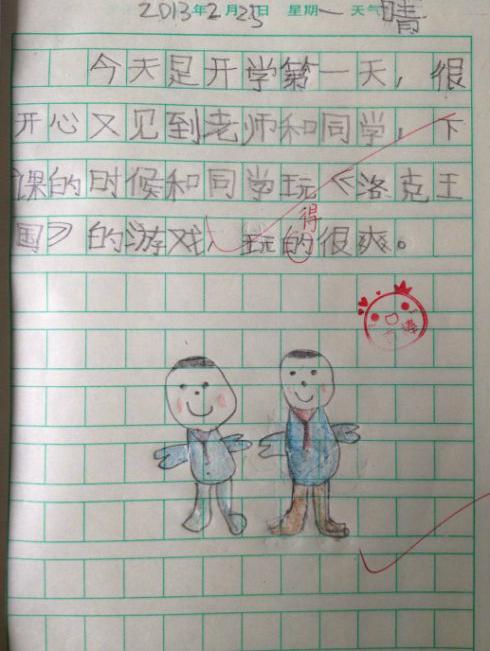 2013年2月25日 星期一 天气晴
今天是开学第一天，很
开心又见到老师和同学，下
课的时候和同学玩《洛克王
国》的游戏，玩的很爽。
得